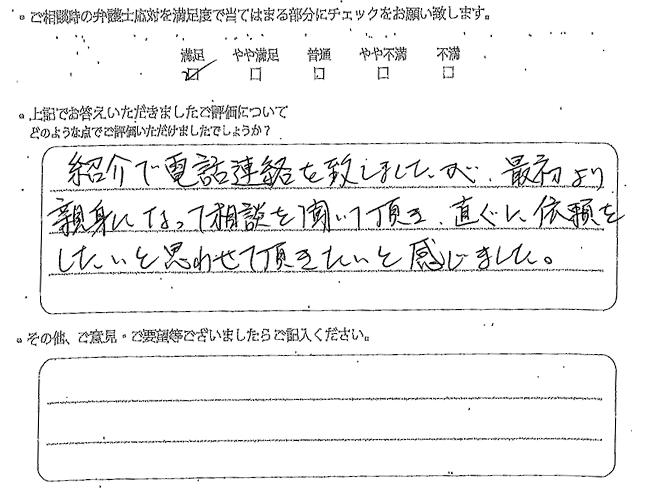 。ご相談時の弁護士応対を満足度で当てはまる部分にチェックをお願い致します。
満足 やや満足 普通 やや不満 不満
☑ □ □ □ □
。上記でお答えいただきましたご評価について
どのような点でご評価いただけましたでしょうか？
紹介で電話連絡を致しましたが、最初より
親身になって相談を聞いて頂き、直ぐに依頼を
したいと思わせて頂きたいと感じました。
。その他、ご意見・ご要望等ございましたらご記入ください。